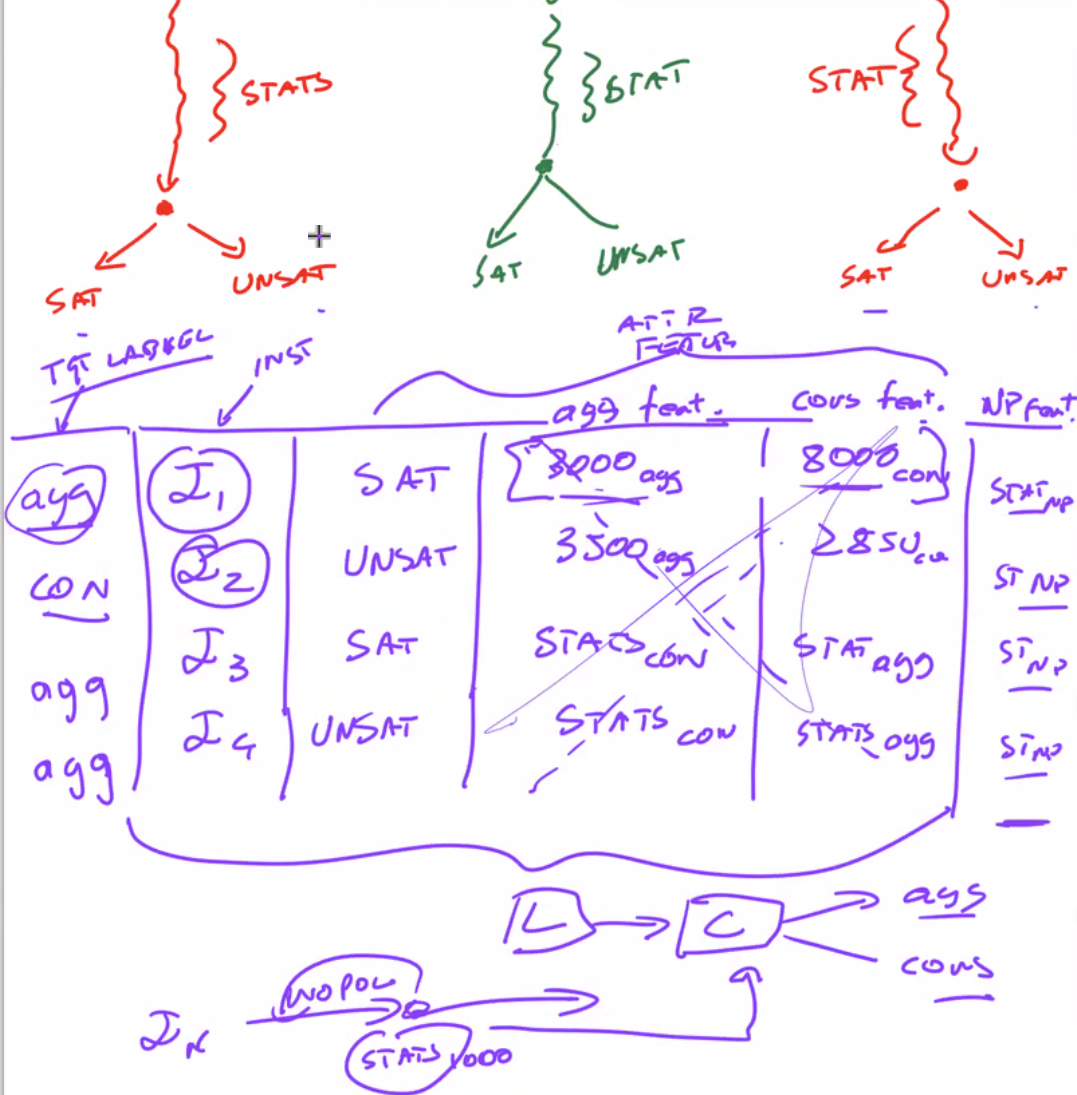 STATS
STAT
STAT
SAT UNSAT
SAT UNSAT
SAT UNSAT
TGT LABKEL
INST
ATTR
FEATUR
agg feat. cons feat. NP feat.
agg I1 SAT 3000 agg 8000 con STAT NP
CON I2 UNSAT 3500 agg 2850 ST NP
agg I3 SAT STATS CON STAT agg ST NP
agg I4 UNSAT STATS CON STATS agg ST NP
L C agg
cons
NO POL
IN
STATS 1000